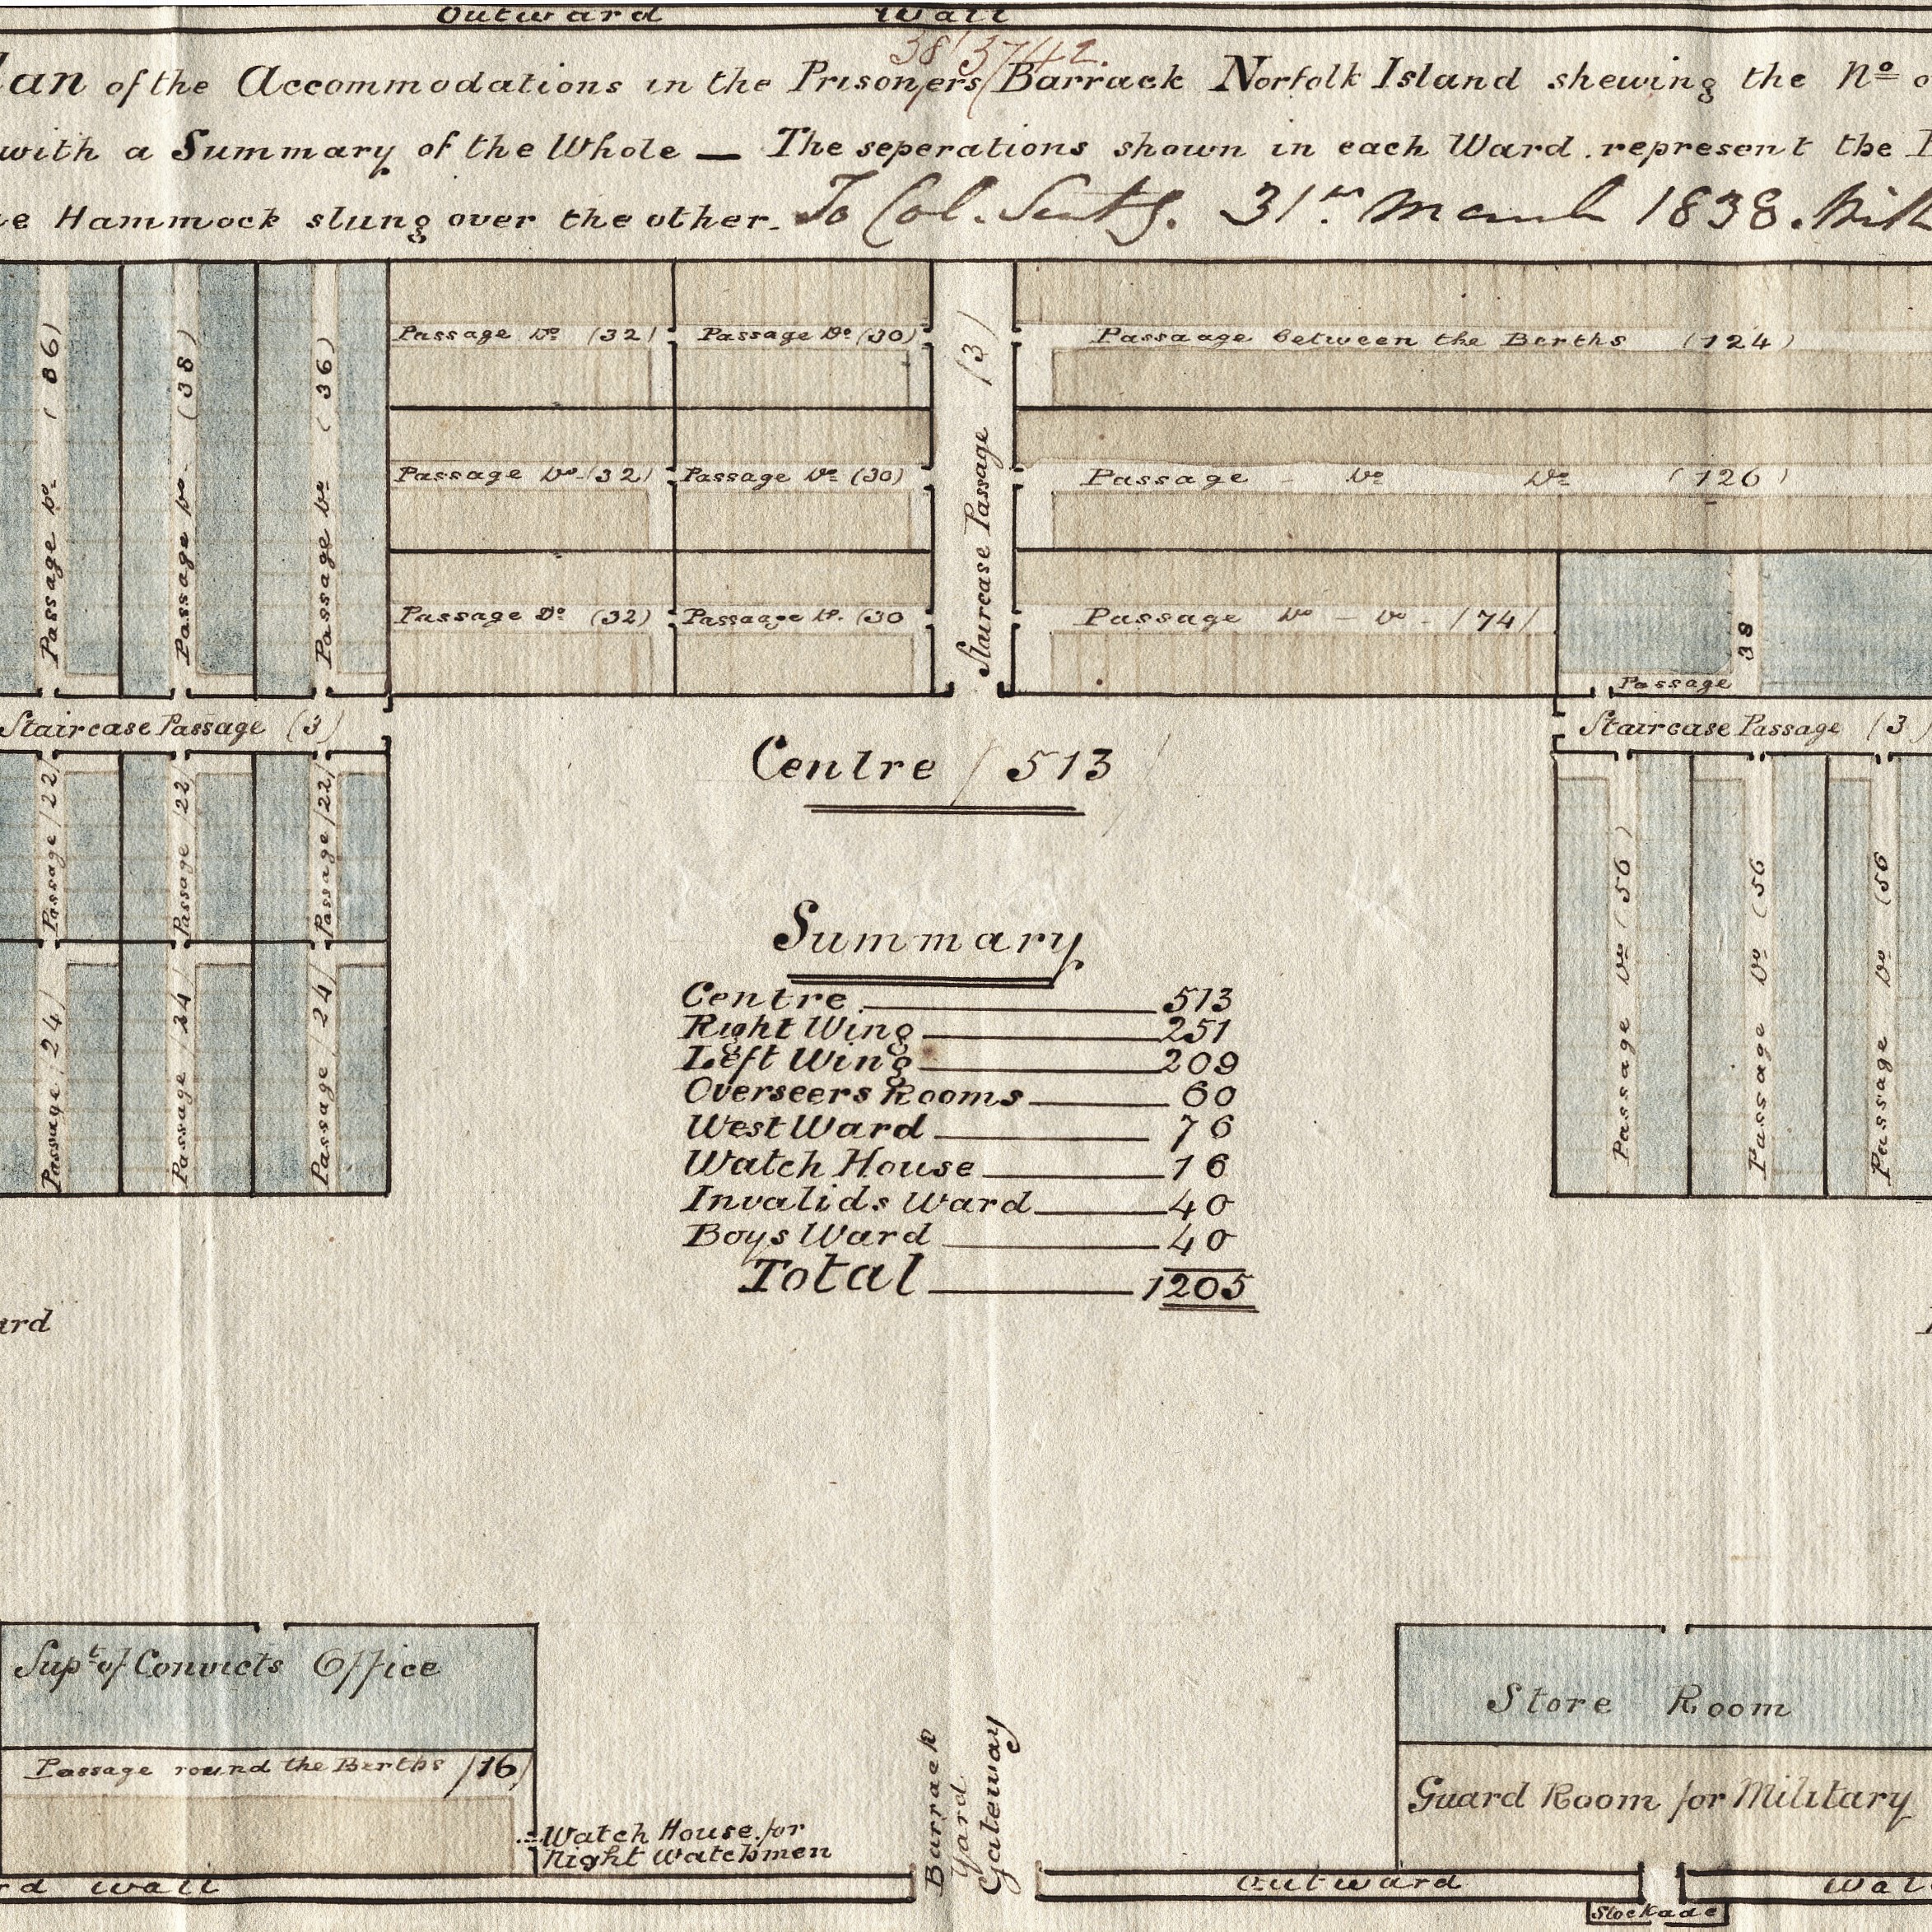 Outward Wall
38/3742.
lan of the Accommodations in the Prisoners Barrack Norfolk Island shewing the Nº o
with a Summary of the Whole — The seperations shown in each Ward represent the
e Hammock slung over the other. To Col. Secty. 31st March 1838.
Passage Dº (86)
Passage Dº (38)
Passage Dº (36)
Passage Dº (32)
Passage Dº (30)
Staircase Passage (3)
Passaage between the Berths (124)
Passage Dº (32)
Passage Dº (30)
Passage Dº Dº (126)
Passage Dº (32)
Passaage Dº (30
Passage Dº Dº (74)
38
Passage
Staircase Passage (3)
Staircase Passage (3)
Centre (513)
Passage (22)
Passage (22)
Passage (22)
Passage (24)
Passage (24
Passage (24)
Passage Dº (56)
Passage Dº (56
Passage Dº (56
Summary
Centre 513
Right Wing 251
Left Wing 209
Overseers Rooms 60
West Ward 76
Watch House 16
Invalids Ward 40
Boys Ward 40
Total 1205
ard
Supt of Convicts Office
Passage round the Berths (16)
Watch House for
Night Watchmen
Barrack
Yard
Gateway
Store Room
Guard Room for Military
rd wall
Outward Wal
Stockade